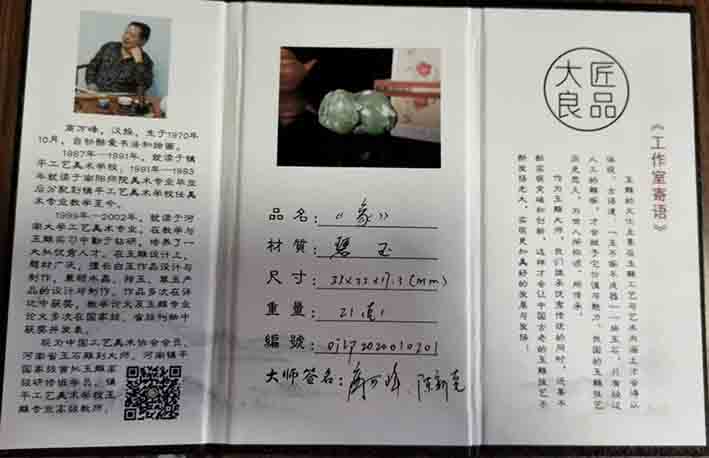 高万峰，汉族，生于1970年
10月，自幼酷爱书法和绘画。
1987年—1991年，就读于镇
平工艺美术学校；1991年—1993
年就读于南阳师院美术专业毕业
后分配到镇平工艺美术学校任美
术专业教学至今。
1999年—2002年，就读于河
南大学工艺美术专业。在教学与
玉雕实习中勤于钻研，培养了一
大批优秀人才。在玉雕设计上，
题材广泛，擅长白玉作品设计与
制作，兼顾水晶、独玉、翠玉产
品的设计与制作。作品多次在评
比中获奖，教学论文及玉雕专业
论文多次在国家级、省级刊物中
获奖并发表。
现为中国工艺美术协会会员、
河南省玉石雕刻大师、河南镇平
国家级首批玉雕高
级研修班学员、镇
平工艺美术学校玉
雕专业高级教师。
品名：《象》
材質：碧玉
尺寸：33x22x17.3(mm)
重量：21克
編號：
大师签名：高万峰 陈新克
大良匠品
《工作室寄语》
玉雕的文化主要在玉雕工艺与艺术内涵上才得以
体现。古语道，一玉不琢不成器一一块玉石，只有经过
人工的雕琢，才会赋予它价值与魅力。我国的玉雕技艺
历史悠久，为世人所称颂、所传承。
作为玉雕大师，我们继承优秀传统的同时，还要不
断实现突破和创新，这样才会让中国古老的玉雕技艺不
断发扬光大，实现更加美好的发展与发扬！